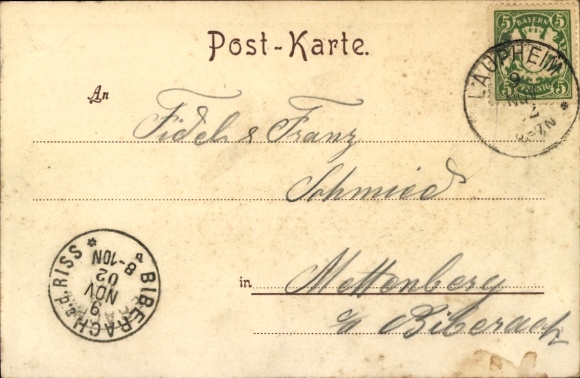 Post-Karte.
BAYERN
5 5
5 5
PFENNIG
LAUPHEIM
9
NOV
An
Fidel & Franz
Schmied
in Mettenberg
a/ Biberach
BIBERACH a.d. RISS
9
NOV
02
8-10N